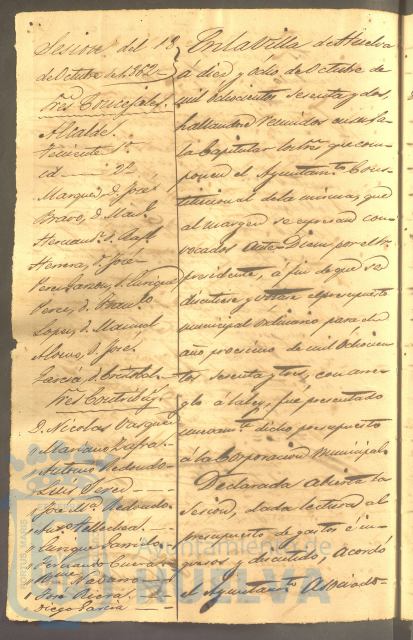 Sesion del 18
de Octubre de 1862 =
Sres. Concejales.
Alcalde.
Teniente 1º
id — 2º
Marquez, D. José
Bravo, D. Man.l
Hernand.z D. Raf.l
Herrera, D. José
Perez, D. Braulio
Lopez, D. Manuel
Alonso, D. José
Garcia, D. Cristobal
Sres. Contribuy.s
D. Nicolas Vazquez
" Mariano Zafra
" Antonio Redondo
" Luis
" José M.a Redondo
" Enrique
" Fernando Cueva
Navarro
" José
Diego Garcia
En la Villa de Huelva
á diez y ocho de Octubre de
mil ochocientos sesenta y dos,
hallandose reunidos en su Sa-
la Capitular los Sres. que com-
ponen el Ayuntam.to Cons-
titucional de la misma, que
al margen se espresan con-
vocados ante Diem por el Sr.
presidente, á fin de que se
discutiese y votase el presupuesto
municipal ordinario para el
año procsimo de mil ochocien-
tos sesenta y tres, con arre-
glo á la ley, fué presentado
dicho presupuesto
á la Corporacion Municipal.
Declarada abierta la
sesion, dada lectura al
presupuesto de gastos é in-
gresos y discutido, acordó
el Ayuntam.to Asociado
PORTUS MARIS
Ayuntamiento de
HUELVA